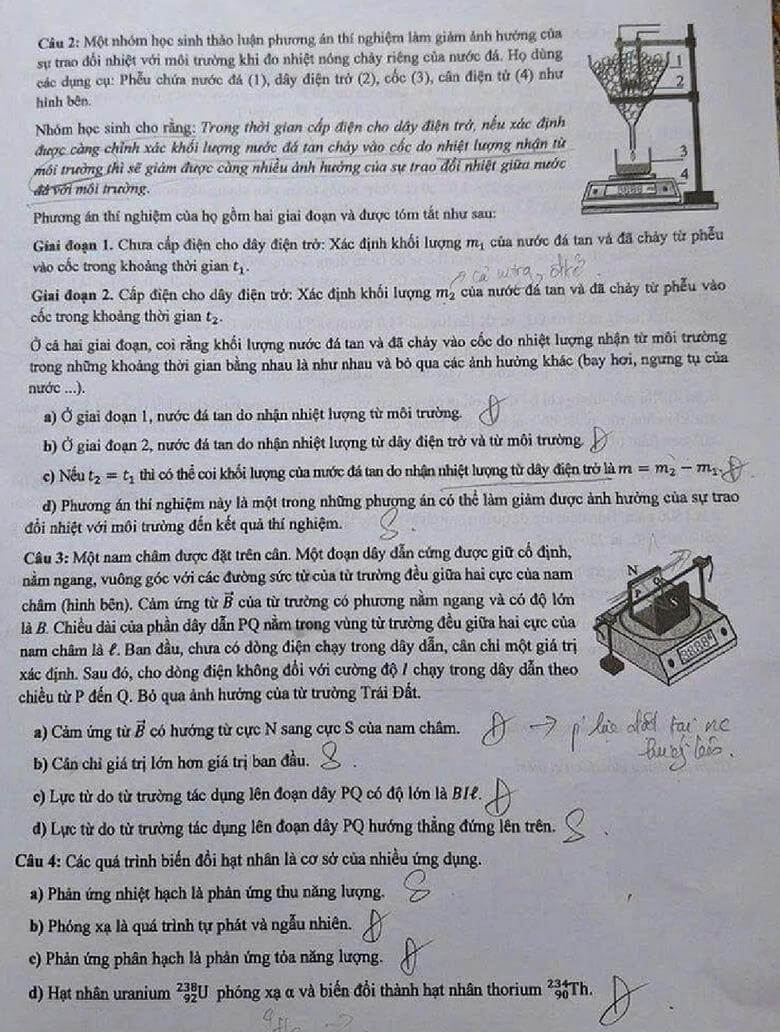 Câu 2: Một nhóm học sinh thảo luận phương án thí nghiệm làm giảm ảnh hưởng của
sự trao đổi nhiệt với môi trường khi đo nhiệt nóng chảy riêng của nước đá. Họ dùng
các dụng cụ: Phễu chứa nước đá (1), dây điện trở (2), cốc (3), cân điện tử (4) như
hình bên.
1
2
3
4
Nhóm học sinh cho rằng: Trong thời gian cấp điện cho dây điện trở, nếu xác định
được càng chính xác khối lượng nước đá tan chảy vào cốc do nhiệt lượng nhận từ
môi trường thì sẽ giảm được càng nhiều ảnh hưởng của sự trao đổi nhiệt giữa nước
đá với môi trường.
Phương án thí nghiệm của họ gồm hai giai đoạn và được tóm tắt như sau:
Giai đoạn 1. Chưa cấp điện cho dây điện trở: Xác định khối lượng m₁ của nước đá tan và đã chảy từ phễu
vào cốc trong khoảng thời gian t₁.
Giai đoạn 2. Cấp điện cho dây điện trở: Xác định khối lượng m₂ của nước đá tan và đã chảy từ phễu vào
cốc trong khoảng thời gian t₂.
Ở cả hai giai đoạn, coi rằng khối lượng nước đá tan và đã chảy vào cốc do nhiệt lượng nhận từ môi trường
trong những khoảng thời gian bằng nhau là như nhau và bỏ qua các ảnh hưởng khác (bay hơi, ngưng tụ của
nước ...).
a) Ở giai đoạn 1, nước đá tan do nhận nhiệt lượng từ môi trường. Đ
b) Ở giai đoạn 2, nước đá tan do nhận nhiệt lượng từ dây điện trở và từ môi trường. Đ
c) Nếu t₂ = t₁ thì có thể coi khối lượng của nước đá tan do nhận nhiệt lượng từ dây điện trở là m = m₂ − m₁. Đ
d) Phương án thí nghiệm này là một trong những phương án có thể làm giảm được ảnh hưởng của sự trao
đổi nhiệt với môi trường đến kết quả thí nghiệm. S
Câu 3: Một nam châm được đặt trên cân. Một đoạn dây dẫn cứng được giữ cố định,
nằm ngang, vuông góc với các đường sức từ của từ trường đều giữa hai cực của nam
châm (hình bên). Cảm ứng từ B⃗ của từ trường có phương nằm ngang và có độ lớn
là B. Chiều dài của phần dây dẫn PQ nằm trong vùng từ trường đều giữa hai cực của
nam châm là ℓ. Ban đầu, chưa có dòng điện chạy trong dây dẫn, cân chỉ một giá trị
xác định. Sau đó, cho dòng điện không đổi với cường độ I chạy trong dây dẫn theo
chiều từ P đến Q. Bỏ qua ảnh hưởng của từ trường Trái Đất.
N
P
Q
S
a) Cảm ứng từ B⃗ có hướng từ cực N sang cực S của nam châm. Đ
b) Cân chỉ giá trị lớn hơn giá trị ban đầu. S
c) Lực từ do từ trường tác dụng lên đoạn dây PQ có độ lớn là BIℓ. Đ
d) Lực từ do từ trường tác dụng lên đoạn dây PQ hướng thẳng đứng lên trên. S
Câu 4: Các quá trình biến đổi hạt nhân là cơ sở của nhiều ứng dụng.
a) Phản ứng nhiệt hạch là phản ứng thu năng lượng. S
b) Phóng xạ là quá trình tự phát và ngẫu nhiên. Đ
c) Phản ứng phân hạch là phản ứng tỏa năng lượng. Đ
d) Hạt nhân uranium ²³⁸₉₂U phóng xạ α và biến đổi thành hạt nhân thorium ²³⁴₉₀Th. Đ